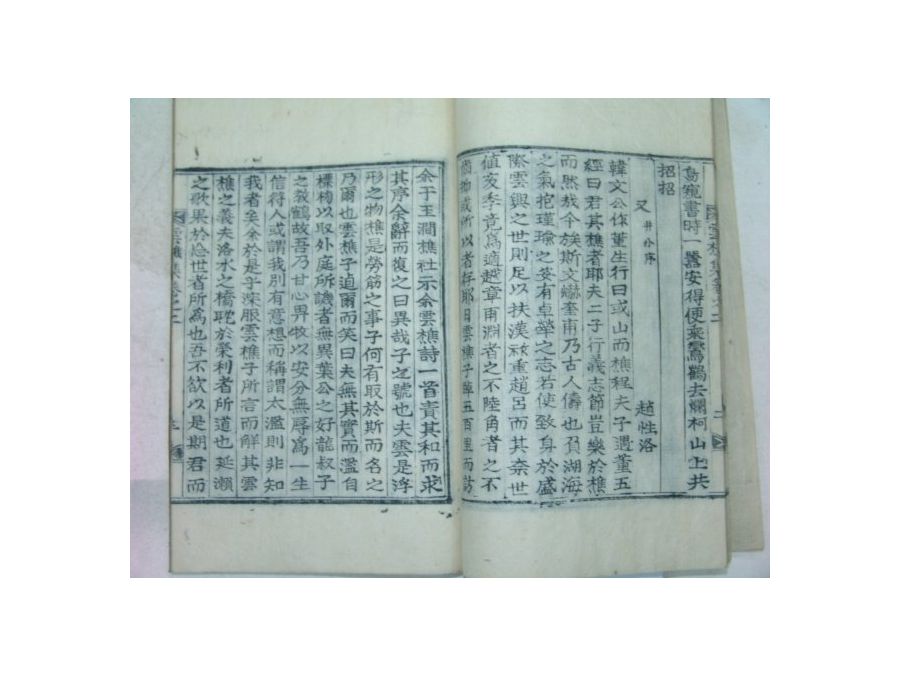 爲窺書時一囂安得便乘鸞鶴去爛柯山上共
招招
又 并小序
趙性洛
韓文公作董生行曰或山而樵程夫子遇董五
經曰君其樵者耶夫二子行義志節豈樂於樵
而然哉今族斯文爀奎甫乃古人儔也負湖海
之氣抱瑾瑜之姿有卓犖之志若使致身於盛
際雲興之世則足以扶漢祚重趙呂而其奈世
値亥季竟爲適越章甫淵者之不陸角者之不
齒物或所以者存耶日雲樵子踔五百里而訪
余于玉澗樵社示余雲樵詩一首責其和而求
其序余辭而復之曰異哉子之號也夫雲是浮
形之物樵是勞筋之事子何有取於斯而名之
乃爾也雲樵子逌爾而笑曰夫無其實而濫自
標榜以取外庭所譏者無異葉公之好龍叔子
之教鶴故吾乃甘心畀牧以安分無辱爲一生
信得人或謂我別有意想而稱謂太濫則非知
我者矣余於是乎深服雲樵子所言而解其雲
樵之義夫洛水之橋耽於榮利者所道也延瀨
之歌果於忘世者所爲也吾不欲以是期君而
雲樵集卷之二
二
雲樵集卷之二
三